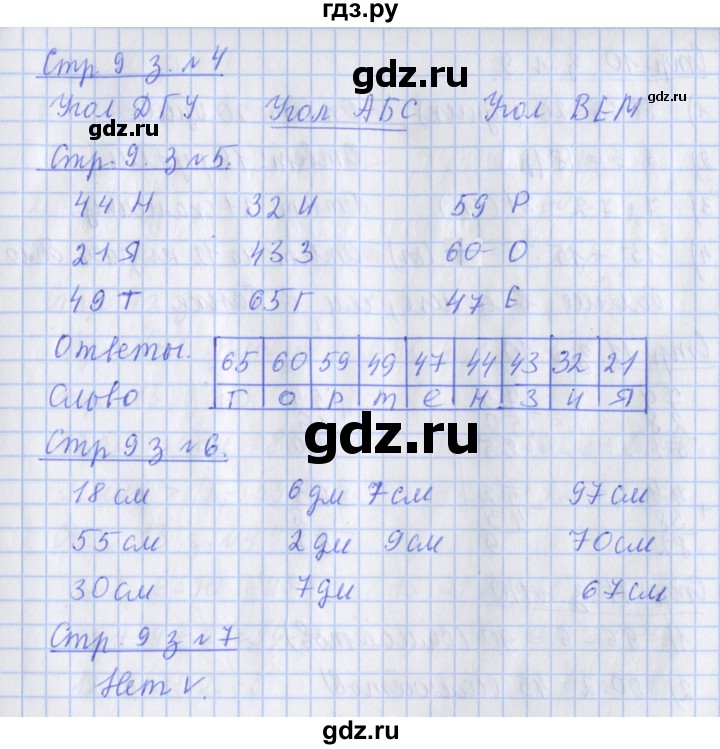 гдз.ру
Стр 9 з. №4
gdz.ru
Угол ДГУ Угол АБС Угол ВЕМ
gdz.ru
gdz.ru
Стр. 9. з №5.
44 Н 32 И 59 Р
gdz.ru
21 Я 43 З 60 О
49 Т 65 Г 47 Е
gdz.ru
Ответы. 65 60 59 49 47 44 43 32 21
Слово Г о р т е н з и я
gdz.ru
Стр 9 з №6.
gdz.ru
18 см 6 дм 7 см 97 см
gdz.ru
55 см 2 дм 9 см 70 см
30 см 7 дм 67 см
gdz.ru
Стр. 9 з №7
gdz.ru
Нет V.
gdz.ru
gdz.ru